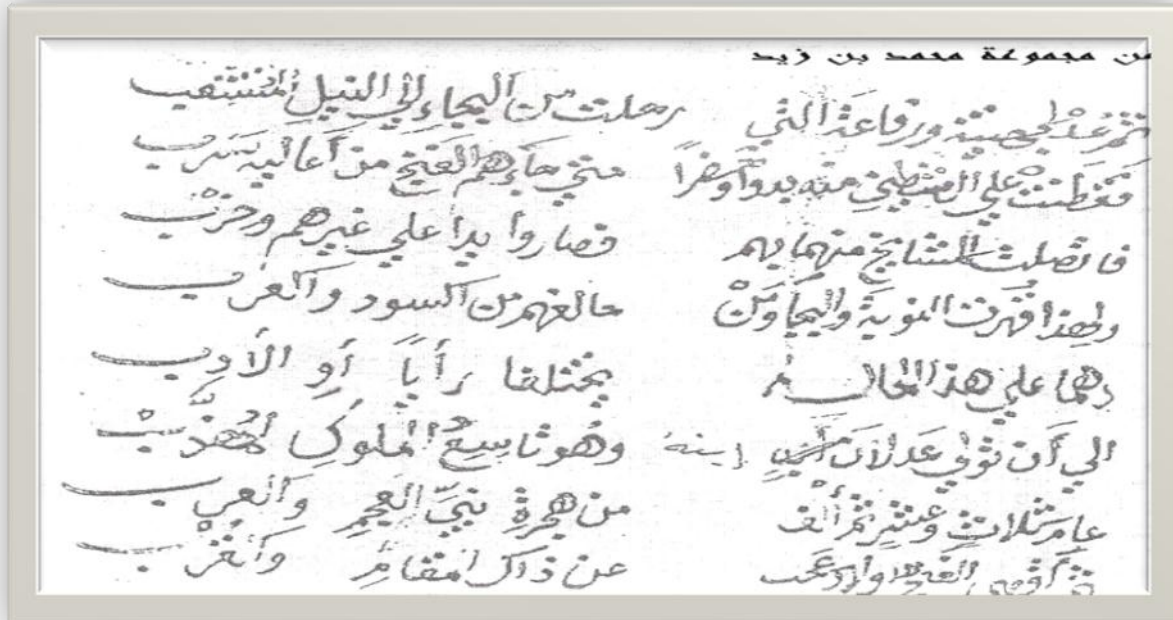 من مجموعة محمد بن زيد
ثم عد لجهينة ورفاعة التي رحلت من البجاء إلي النيل
علي منه بدوا وحضرا متي جاءهم الفنج من أعاليه
فاتصلت المشايخ منهما بهم فصاروا يدا علي غيرهم وحزب
ولهذا قهرت النوبة والبجا ومن حالفهم من السود والعرب
وهما علي هذا الحال لم يختلفا رأيا أو الأدب
الي أن تولي عدلان ابنه وهو تاسع الملوك
عام ثلاث وعشر ثم ألف من هجرة نبي العجم والعرب
الفنج اولاد عجب عن ذاك المقام